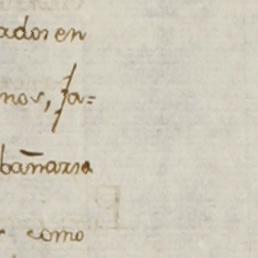 ados en
nos, ja=
bañarse
como